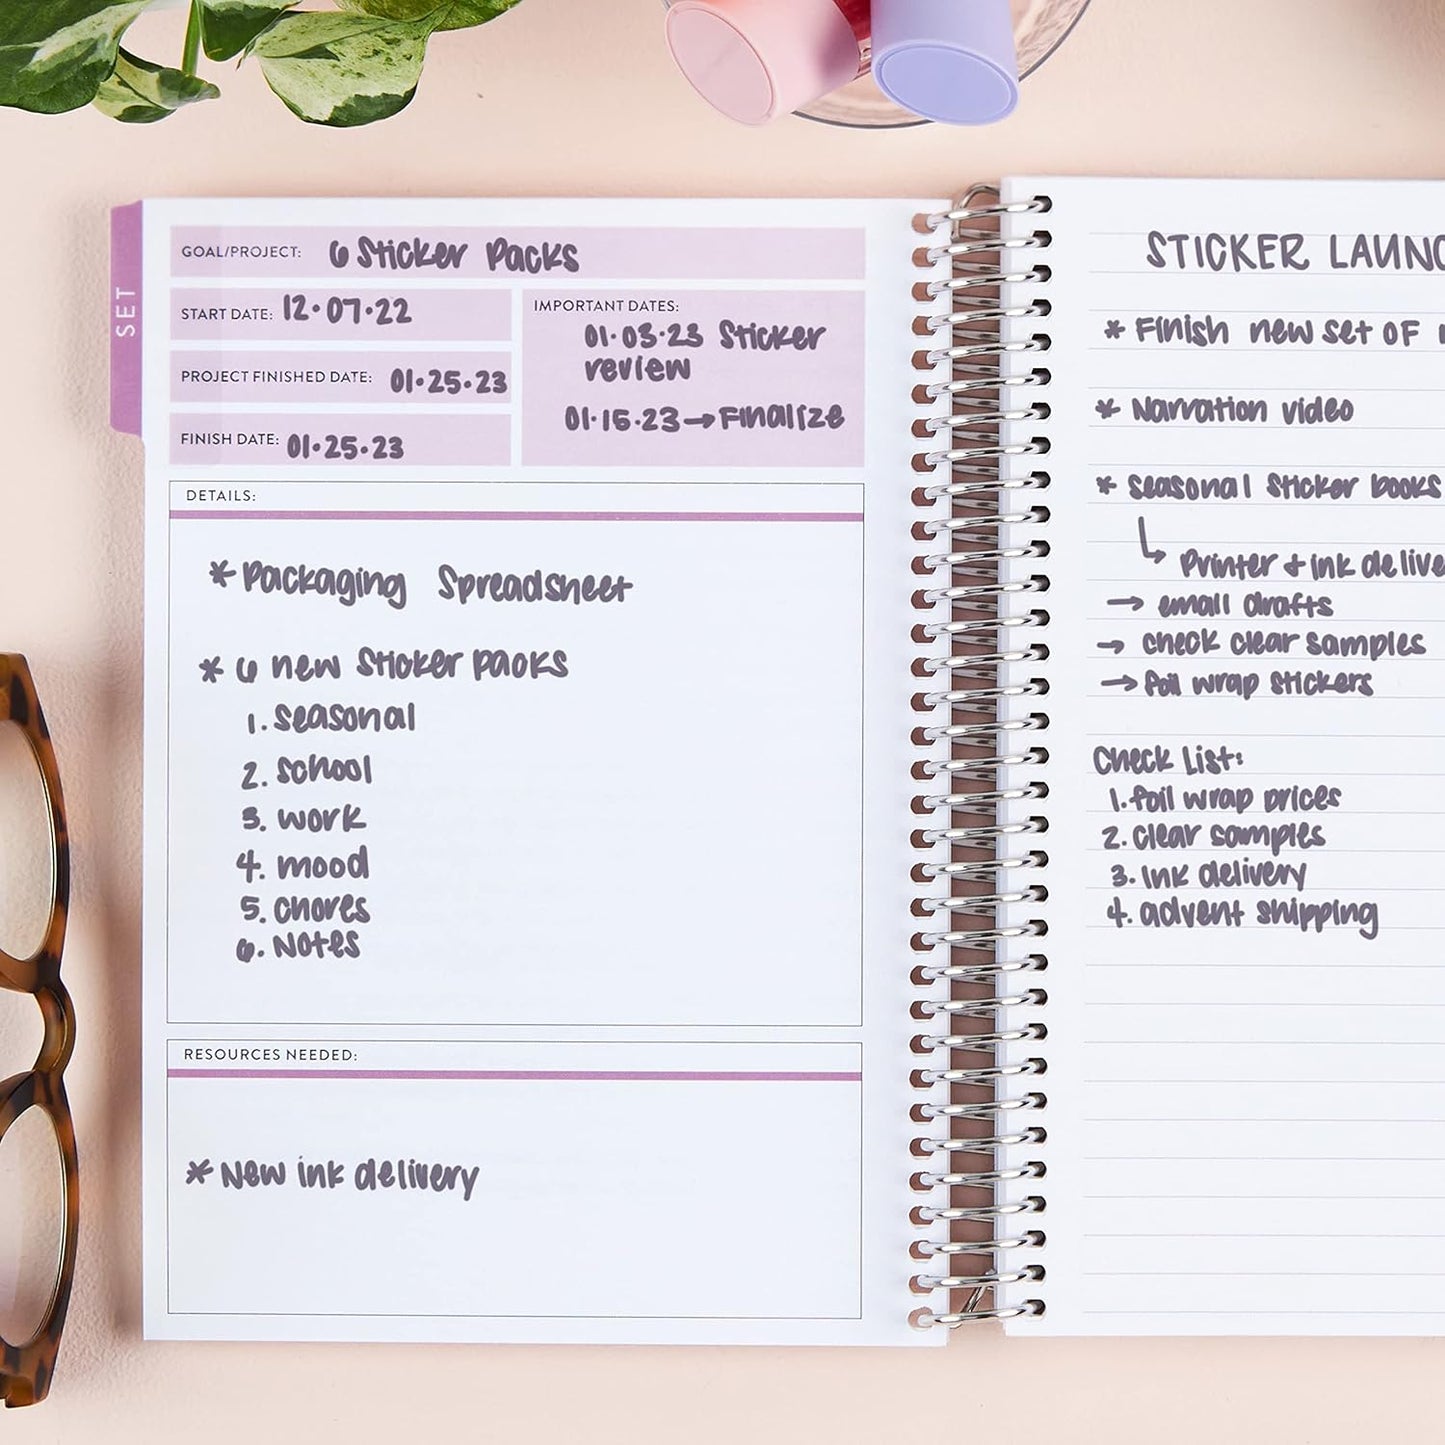 SET
GOAL/PROJECT: 6 Sticker Packs
START DATE: 12·07·22
PROJECT FINISHED DATE: 01·25·23
FINISH DATE: 01·25·23
IMPORTANT DATES:
01·03·23 Sticker
review
01·15·23→Finalize
DETAILS:
* Packaging Spreadsheet
* 6 new Sticker packs
1. Seasonal
2. School
3. work
4. mood
5. chores
6. Notes
RESOURCES NEEDED:
* New ink delivery
STICKER
* Finish new set of
* Narration video
* Seasonal Sticker books
↳ Printer + ink
→ email drafts
→ check clear samples
→ foil wrap stickers
Check List:
1. foil wrap prices
2. clear samples
3. ink delivery
4. advent shipping